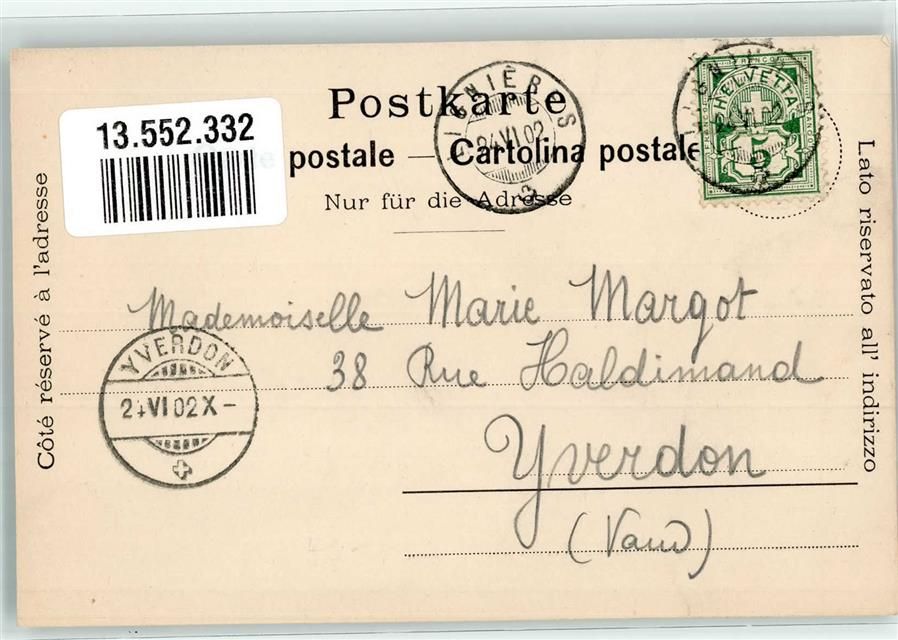 13.552.332
Postkarte
postale — Cartolina postale
Nur für die Adresse
Côté réservé à l'adresse
Lato riservato all' indirizzo
LIGNIÈRES
24.VI.02
FRANCO
HELVETIA
5
Mademoiselle Marie Margot
38 Rue Haldimand
Yverdon
(Vaud)
YVERDON
24 VI 02 X -